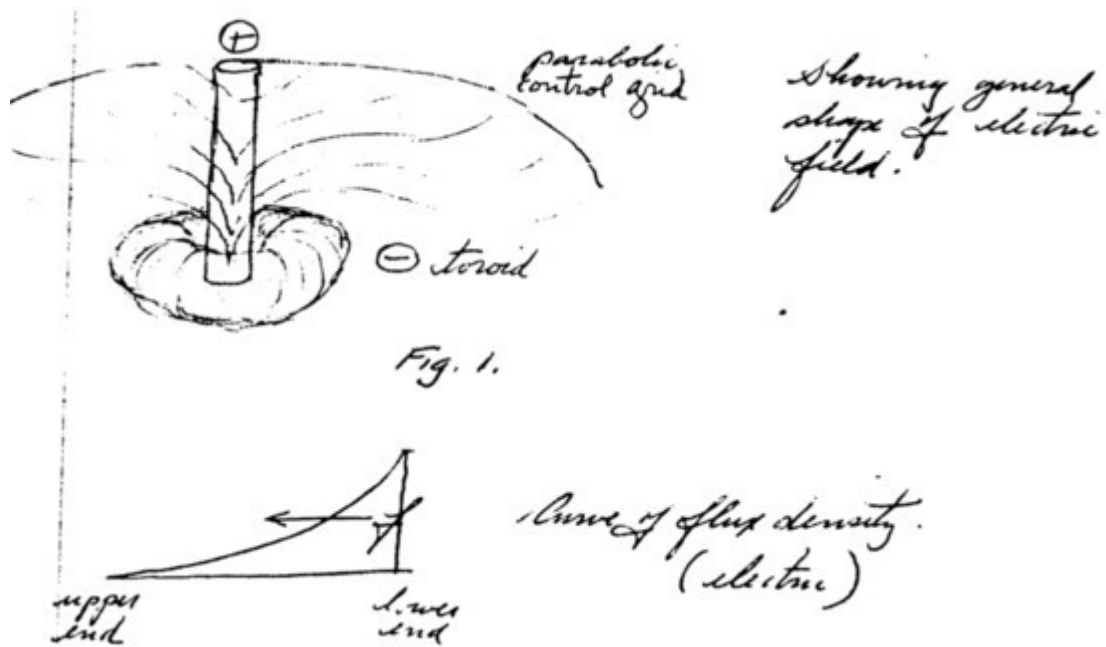 +
parabolic
control grid
showing general
shape of electric
field.
− toroid
Fig. 1.
Curve of flux density.
(electric)
upper
end
lower
end